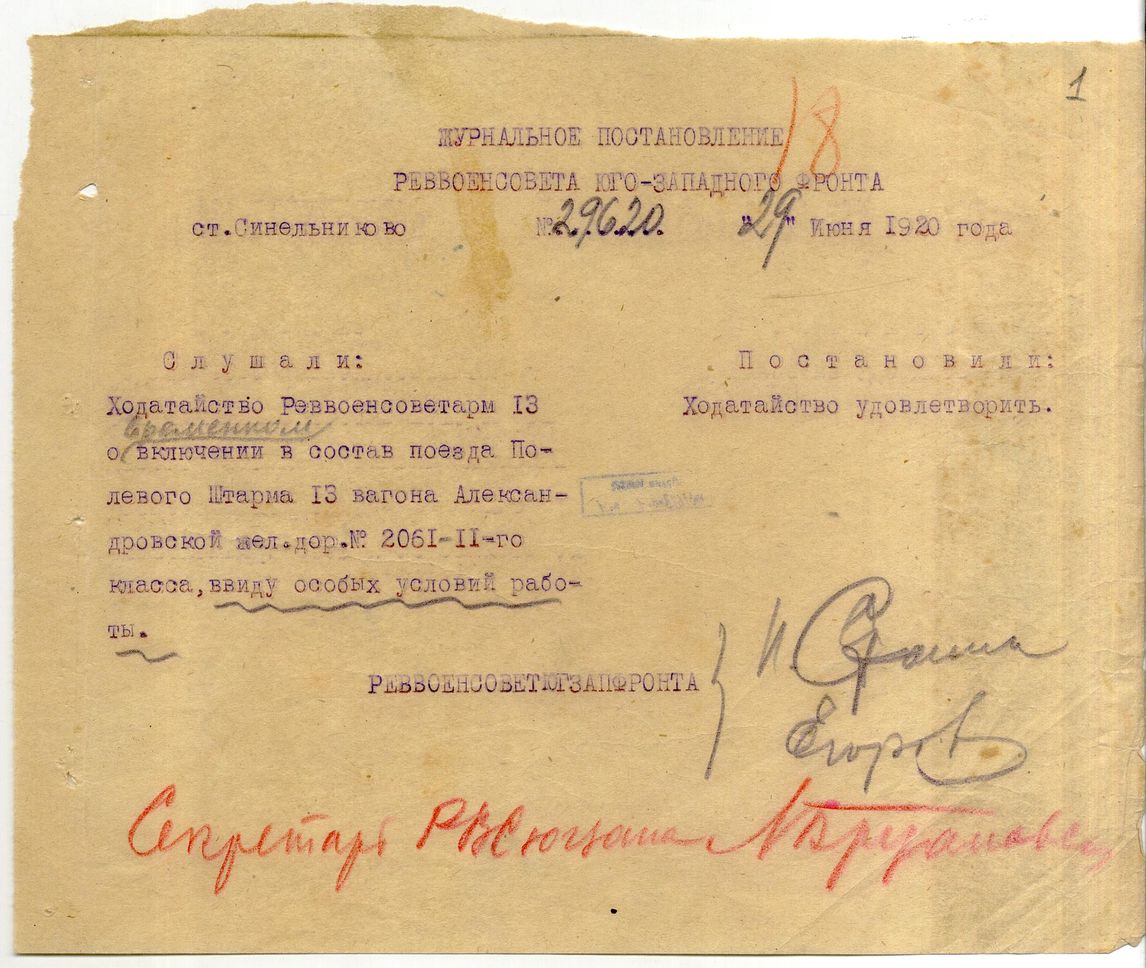 1
18
ЖУРНАЛЬНОЕ ПОСТАНОВЛЕНИЕ
РЕВВОЕНСОВЕТА ЮГО-ЗАПАДНОГО ФРОНТА
ст.Синельниково № 29.6.20. "29" Июня 1920 года
Слушали: Постановили:
Ходатайство Реввоенсоветарм 13 Ходатайство удовлетворить.
временном
о включении в состав поезда По-
левого Штарма 13 вагона Алексан-
дровской жел.дор.№ 2061-II-го
класса,ввиду особых условий рабо-
ты.
РЕВВОЕНСОВЕТЮГЗАПФРОНТА
И. Сталин
Егоров
Секретарь РВСюгзапа